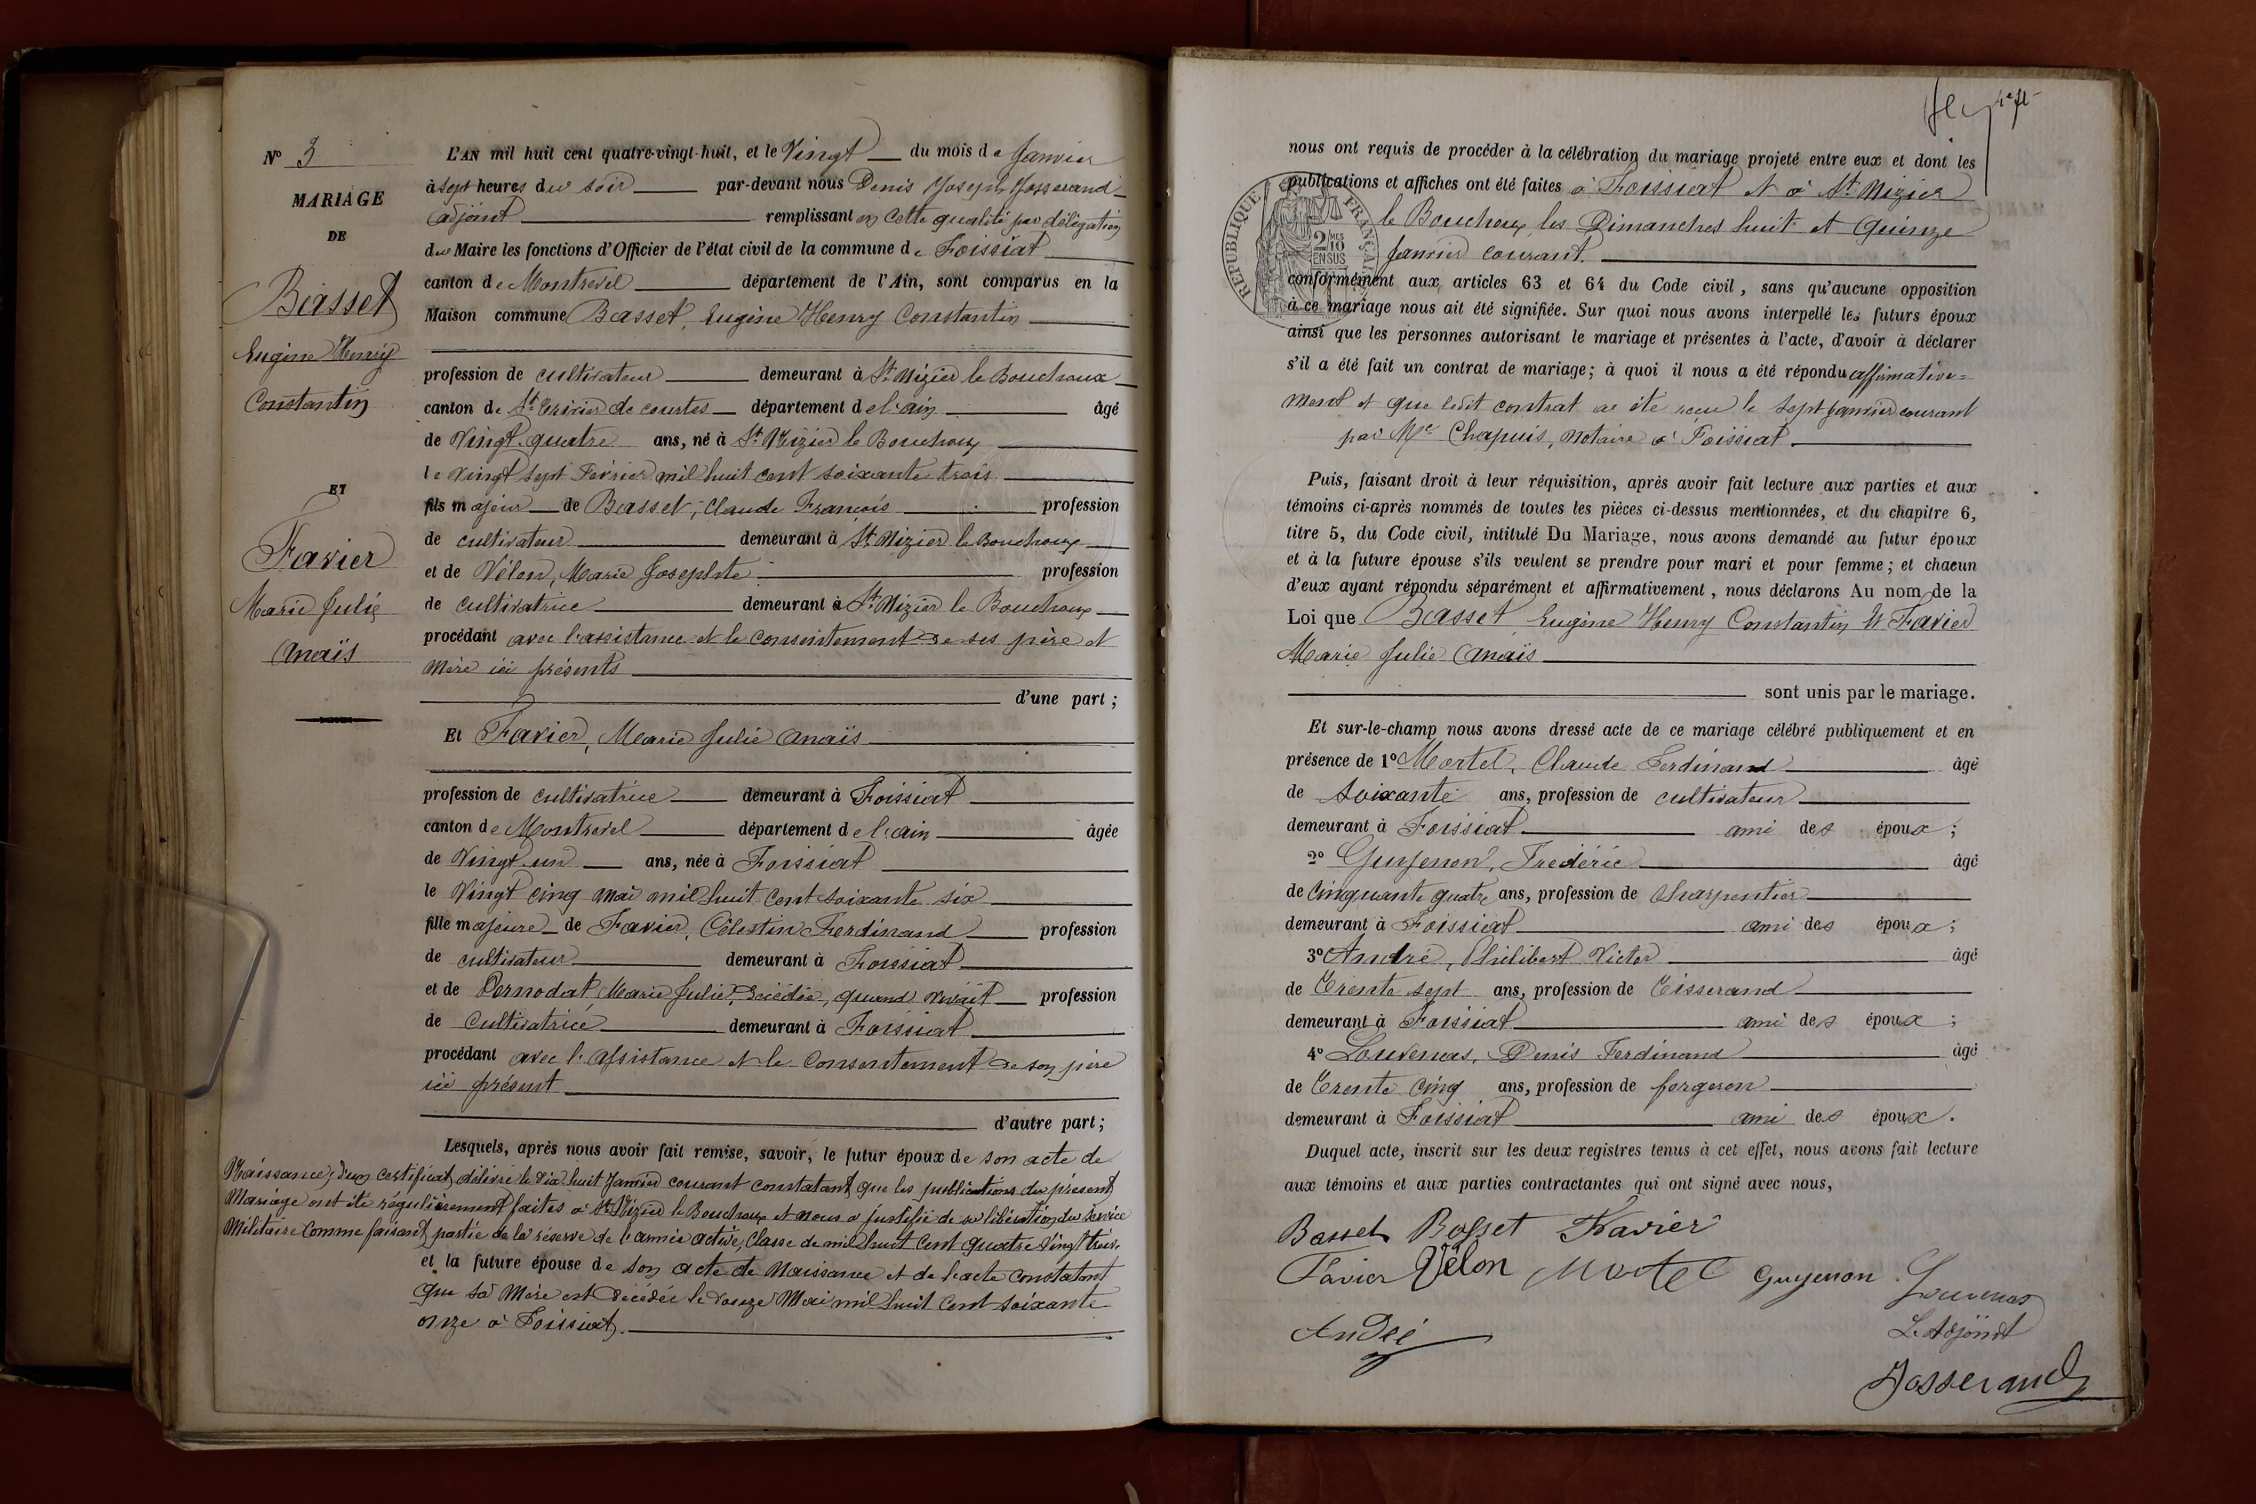 N° 3
MARIAGE
DE
Basset
Eugène Henry
Constantin
ET
Favier
Marie Julie
Anaïs
L'AN mil huit cent quatre-vingt-huit, et le Vingt du mois de Janvier
à sept heures du soir par-devant nous Denis Joseph Josserand
adjoint remplissant en cette qualité par délégation
du Maire les fonctions d'Officier de l'état civil de la commune de Foissiat
canton de Montrevel département de l'Ain, sont comparus en la
Maison commune Basset, Eugène Henry Constantin
profession de cultivateur demeurant à St Nizier le Bouchoux
canton de St Trivier de courtes département de l'ain âgé
de Vingt quatre ans, né à St Nizier le Bouchoux
le vingt sept Février mil huit cent soixante trois
fils majeur de Basset, Claude François profession
de cultivateur demeurant à St Nizier le Bouchoux
et de Vélon, Marie Josephte profession
de cultivatrice demeurant à St Nizier le Bouchoux
procédant avec l'assistance et le consentement de ses père et
mère ici présents
d'une part ;
Et Favier, Marie Julie Anaïs
profession de cultivatrice demeurant à Foissiat
canton de Montrevel département de l'ain âgée
de Vingt un ans, née à Foissiat
le Vingt cinq mai mil huit cent soixante six
fille majeure de Favier, Célestin Ferdinand profession
de cultivateur demeurant à Foissiat
et de Pernodat, Marie Julie, décédée, quand vivait profession
de Cultivatrice demeurant à Foissiat
procédant avec l'assistance et le consentement de son père
ici présent
d'autre part ;
Lesquels, après nous avoir fait remise, savoir, le futur époux de son acte de
Naissance, d'un certificat délivré le dix huit Janvier courant constatant que les publications du present
Mariage ont été régulièrement faites à St Nizier le Bouchoux et nous a justifié de sa libération du service
Militaire comme faisant partie de la réserve de l'armée active, classe de mil huit cent quatre vingt trois.
et la future épouse de son acte de Naissance et de l'acte constatant
que sa Mère est décédée le douze Mai mil huit cent soixante
onze à Foissiat.
nous ont requis de procéder à la célébration du mariage projeté entre eux et dont les
publications et affiches ont été faites à Foissiat et à St Nizier
le Bouchoux les Dimanches huit et Quinze
Janvier courant.
RÉPUBLIQUE FRANÇAISE
2/10 MES
EN SUS
conformément aux articles 63 et 64 du Code civil, sans qu'aucune opposition
à ce mariage nous ait été signifiée. Sur quoi nous avons interpellé les futurs époux
ainsi que les personnes autorisant le mariage et présentes à l'acte, d'avoir à déclarer
s'il a été fait un contrat de mariage ; à quoi il nous a été répondu affirmative=
ment et que ledit contrat a été recu le sept janvier courant
par Me Chapuis, notaire à Foissiat
Puis, faisant droit à leur réquisition, après avoir fait lecture aux parties et aux
témoins ci-après nommés de toutes les pièces ci-dessus mentionnées, et du chapitre 6,
titre 5, du Code civil, intitulé Du Mariage, nous avons demandé au futur époux
et à la future épouse s'ils veulent se prendre pour mari et pour femme ; et chacun
d'eux ayant répondu séparément et affirmativement, nous déclarons Au nom de la
Loi que Basset Eugène Henry Constantin et Favier
Marie Julie Anaïs
sont unis par le mariage.
Et sur-le-champ nous avons dressé acte de ce mariage célébré publiquement et en
présence de 1° Martel, Claude Ferdinand âgé
de Soixante ans, profession de cultivateur
demeurant à Foissiat ami des époux ;
2° Guyenon, Frédéric âgé
de Cinquante quatre ans, profession de Charpentier
demeurant à Foissiat ami des époux ;
3° André, Philibert Victor âgé
de Trente sept ans, profession de Tisserand
demeurant à Foissiat ami des époux ;
4° Louvenas, Denis Ferdinand âgé
de Trente cinq ans, profession de forgeron
demeurant à Foissiat ami des époux.
Duquel acte, inscrit sur les deux registres tenus à cet effet, nous avons fait lecture
aux témoins et aux parties contractantes qui ont signé avec nous,
Basset Basset Favier
Favier Vélon Martel Guyenon Louvenas
André L'Adjoint
Josserand